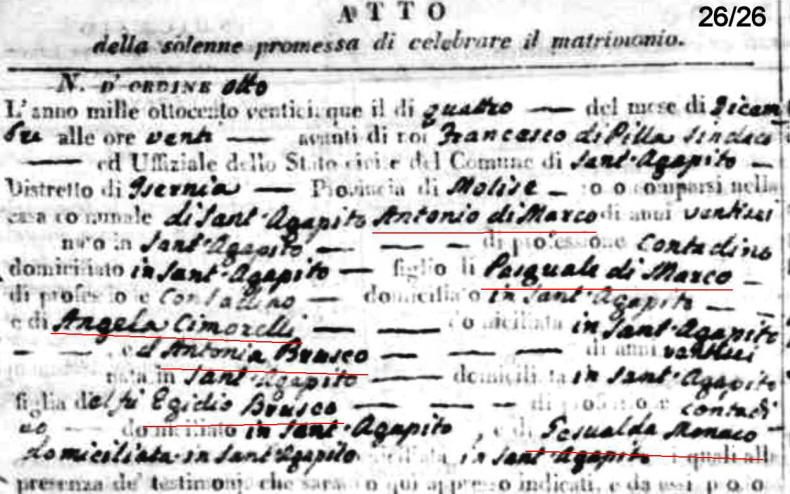 26/26
ATTO
della solenne promessa di celebrare il matrimonio.
N. D'ORDINE otto
L'anno mille ottocento venticinque il di quattro — del mese di Dicem
bre alle ore venti — avanti di noi Francesco di Pilla Sindaco
— ed Uffiziale dello Stato civile del Comune di Sant'Agapito —
Distretto di Isernia — Provincia di Molise — sono comparsi nella
casa comunale di Sant'Agapito Antonio di Marco di anni ventisei
nato in Sant'Agapito — — — di professione Contadino
domiciliato in Sant'Agapito — figlio di Pasquale di Marco —
di professione Contadino — domiciliato in Sant'Agapito — —
e di Angela Cimorelli — — domiciliata in Sant'Agapito
— — — ed Antonia Brusco — — — di anni ventisei
nata in Sant'Agapito — — domiciliata in Sant'Agapito
figlia del fu Egidio Brusco — — — di professione contadi
no — domiciliato in Sant'Agapito , e di Gesualda Monaco
domiciliata in Sant'Agapito in Sant'Agapito i quali alla
presenza de' testimonj che saranno qui appresso indicati, e da essi